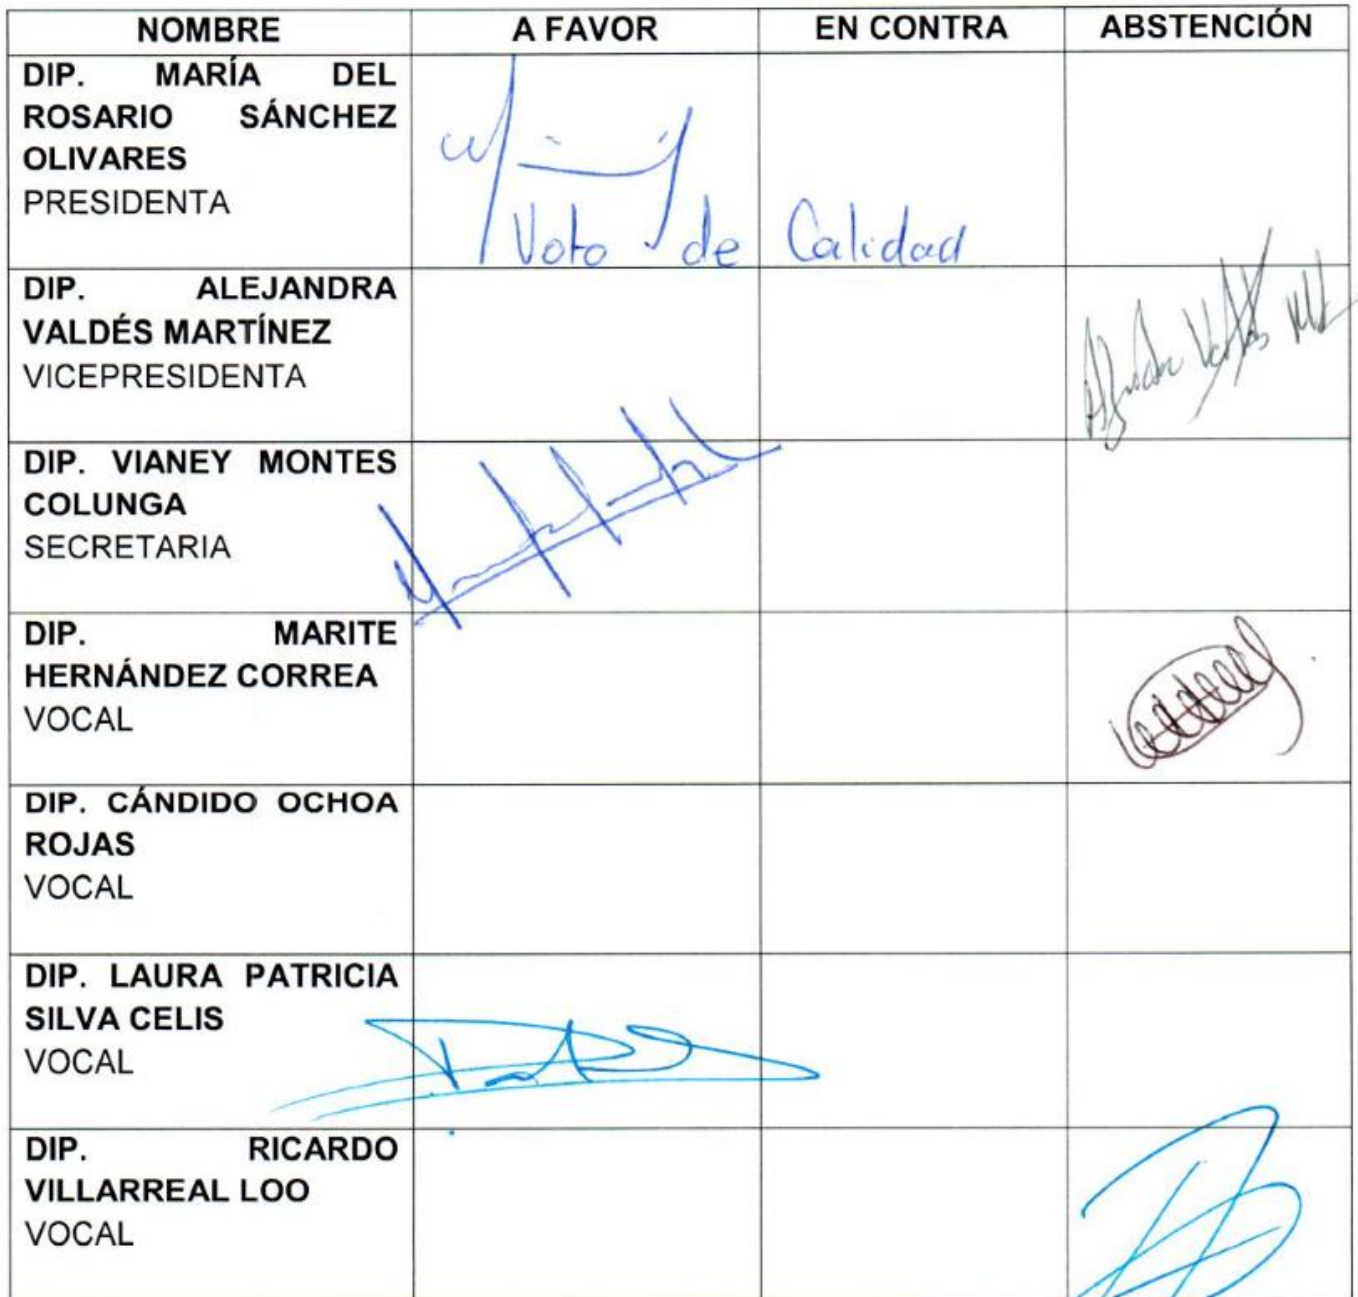 NOMBRE A FAVOR EN CONTRA ABSTENCIÓN
DIP. MARÍA DEL
ROSARIO SÁNCHEZ
OLIVARES
PRESIDENTA
Voto de Calidad
DIP. ALEJANDRA
VALDÉS MARTÍNEZ
VICEPRESIDENTA
DIP. VIANEY MONTES
COLUNGA
SECRETARIA
DIP. MARITE
HERNÁNDEZ CORREA
VOCAL
DIP. CÁNDIDO OCHOA
ROJAS
VOCAL
DIP. LAURA PATRICIA
SILVA CELIS
VOCAL
DIP. RICARDO
VILLARREAL LOO
VOCAL